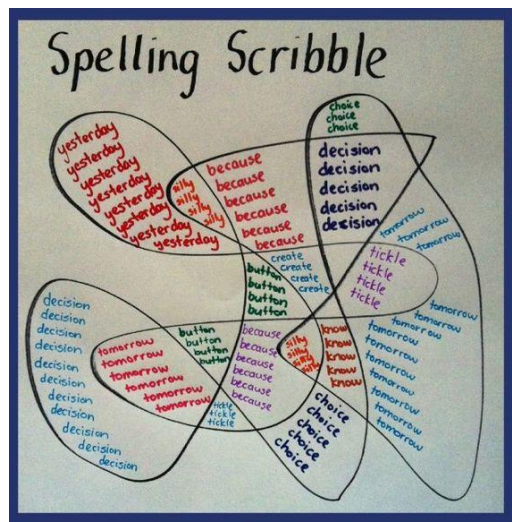 Spelling Scribble
yesterday
yesterday
yesterday
yesterday
yesterday
yesterday
yesterday
yesterday
silly
silly
silly
silly
because
because
because
because
because
because
choice
choice
choice
decision
decision
decision
decision
decision
tomorrow
tomorrow
tomorrow
create
create
create
create
button
button
button
button
tickle
tickle
tickle
tickle
decision
decision
decision
decision
decision
decision
decision
decision
decision
decision
decision
tomorrow
tomorrow
tomorrow
tomorrow
tomorrow
button
button
button
button
because
because
because
because
because
because
tickle
tickle
tickle
silly
silly
silly
silly
know
know
know
know
know
choice
choice
choice
choice
choice
tomorrow
tomorrow
tomorrow
tomorrow
tomorrow
tomorrow
tomorrow
tomorrow
tomorrow
tomorrow